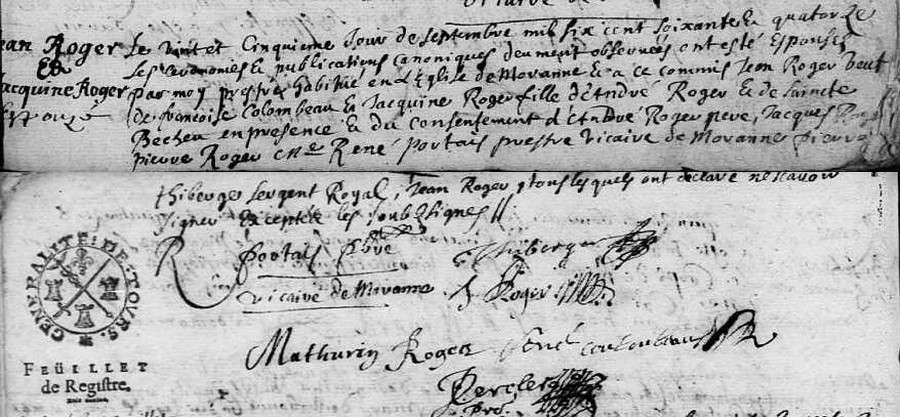 Jean Roger
Et
Jacquine Roger
Espouzé
Le vint et Cinquieme Jour de septembre mil six cent soixante & quatorze
Les Ceremonies & publications canoniques deument observees ont esté Espousés
par moy prestre habitué en l'Eglise de Moranne & a ce commis Jean Roger veuf
de francoise Colombeau & Jacquine Roger fille d'Andre Roger & de
Becheu en presence & du consentement d'André Roger pere, Jacques
pierre Roger René portais prestre vicaire de Moranne pierre
thiberge sergent Royal, Jean Roger, tous lesquels ont declare ne scavoir
signer Exceptée les soubsignes
portais pbre
Thiberge
vicaire de Moranne
J Roger
Mathurin Roger
GENERALITE DE TOURS
FEÜILLET
de Registre.